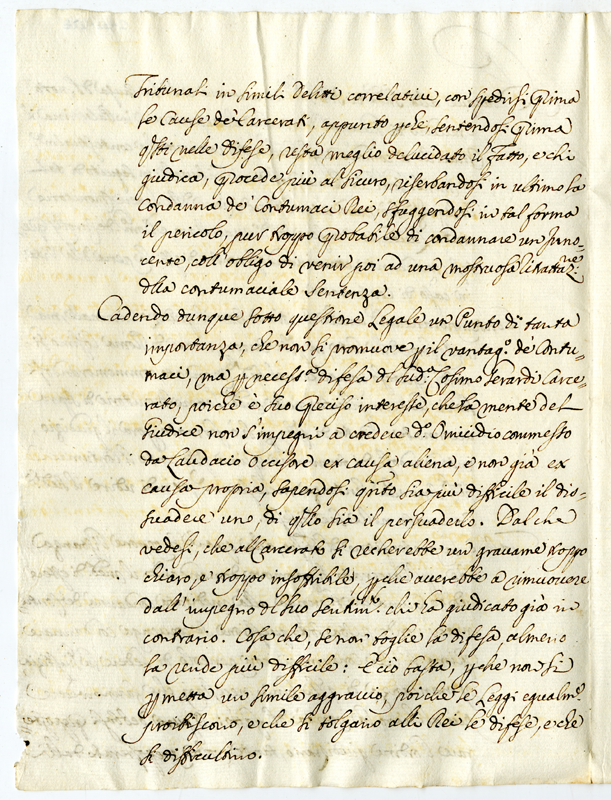 Tribunali in simili Delitti correlativi, con spedirsi prima
le Cause de Carcerati, appunto pche, sentendosi prima
qsti nelle difese, resta meglio delucidato il Fatto, e chi
giudica, procede più al sicuro, riserbandosi in ultimo la
condanna de Contumaci Rei, sfuggendosi in tal forma
il pericolo, pur troppo probabile di condannare un Inno-
cente, coll'obligo di venir poi ad una mostruosa ritrattazne:
dlla contumaciale Sentenza.
Cadendo dunque sotto questione Legale un Punto di tanta
importanza, che non si promuove p il vantago. de Contu-
maci, ma p necessa. difesa dl sudo. Cosimo Gerardi Carce-
rato, poiche è suo preciso interesse, che la mente del
Giudice non s'impegni a credere do. Omicidio commesso
da Uccisore ex causa aliena, e non già ex
causa propria, sapendosi qnto sia più difficile il dis-
suadere uno, di qllo sia il persuaderlo. Dal che
vedesi, che al Carcerato si recherebbe un gravame troppo
chiaro, e troppo insoffribile, pche averebbe a rimuovere
dall'impegno dl suo sentimto. chi ha giudicato già in
contrario. Cosa che, se non toglie la difesa almeno
la rende più difficile: E ciò basta, pche non si
pmetta un simile aggravio, poiche le Leggi egualme.
proibiscono, e che si tolgano alli Rei le difese, e che
si difficultino.